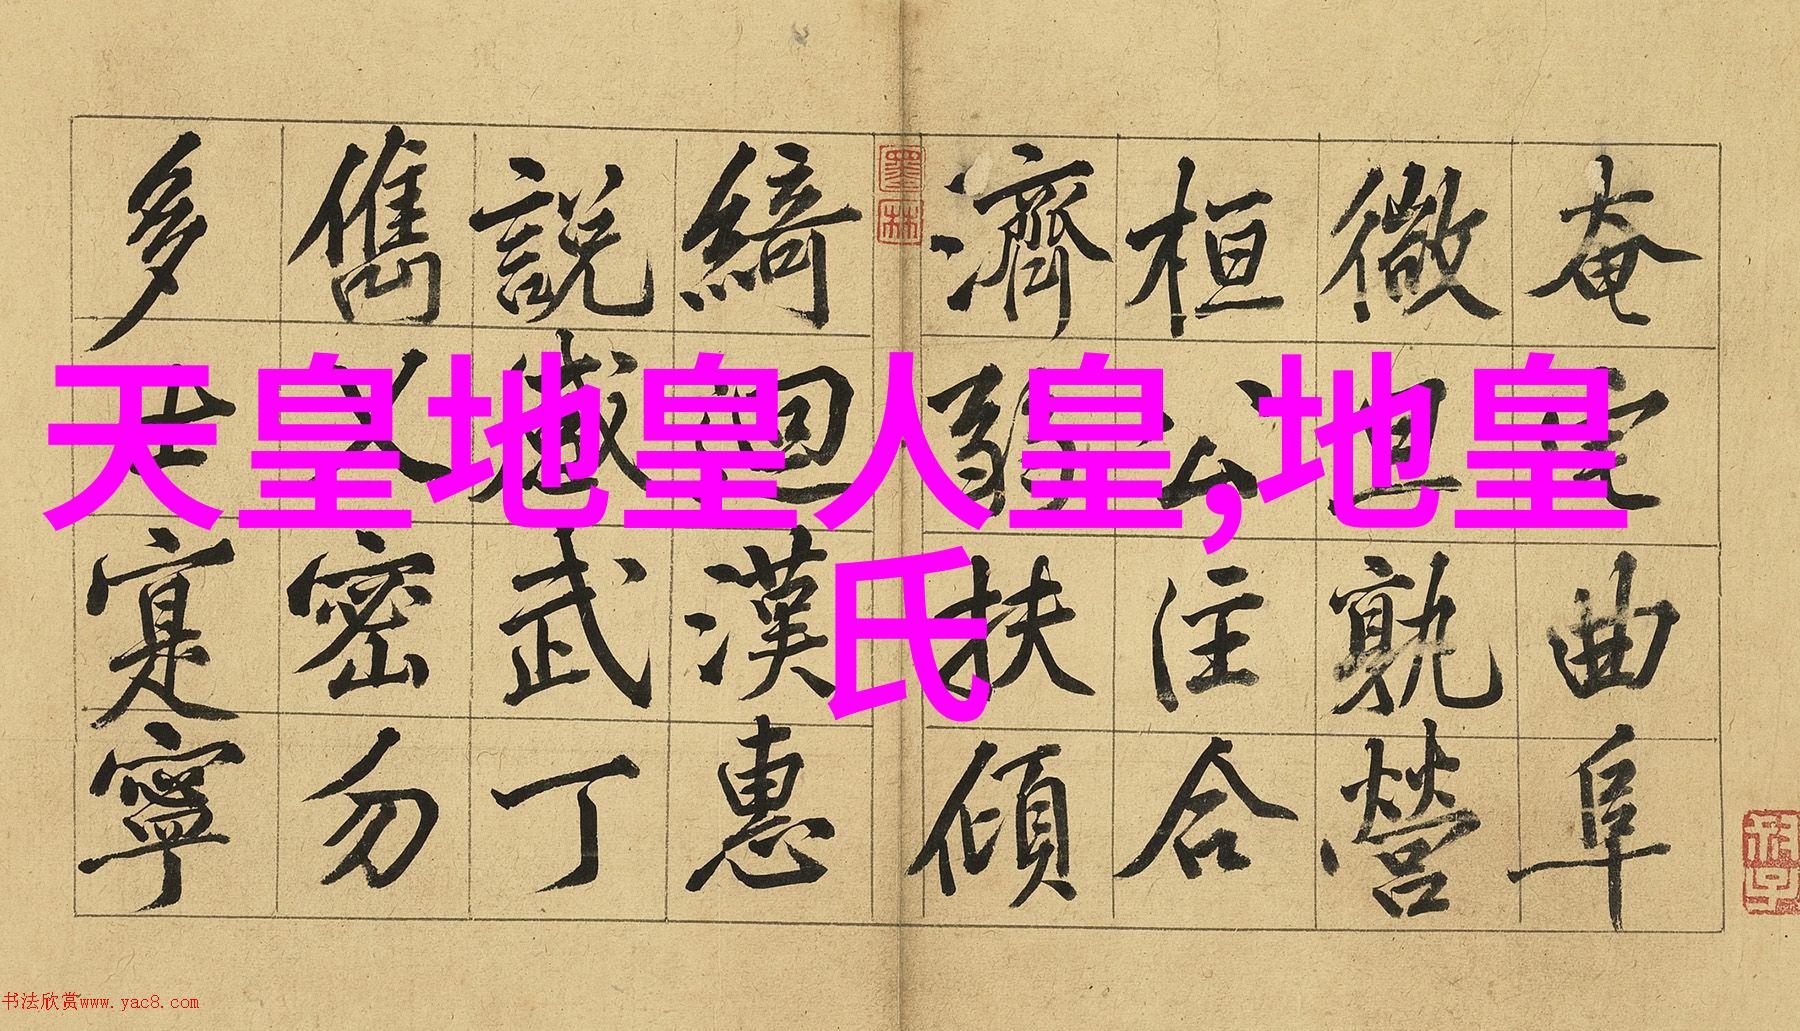 奄宅曲阜
微旦孰營
桓公合
濟弱扶傾
墨林
綺迴漢惠
說感武丁
儁乂密勿
多士寔寧
天皇地皇人皇,地皇
氏
书法欣赏www.yac8.com